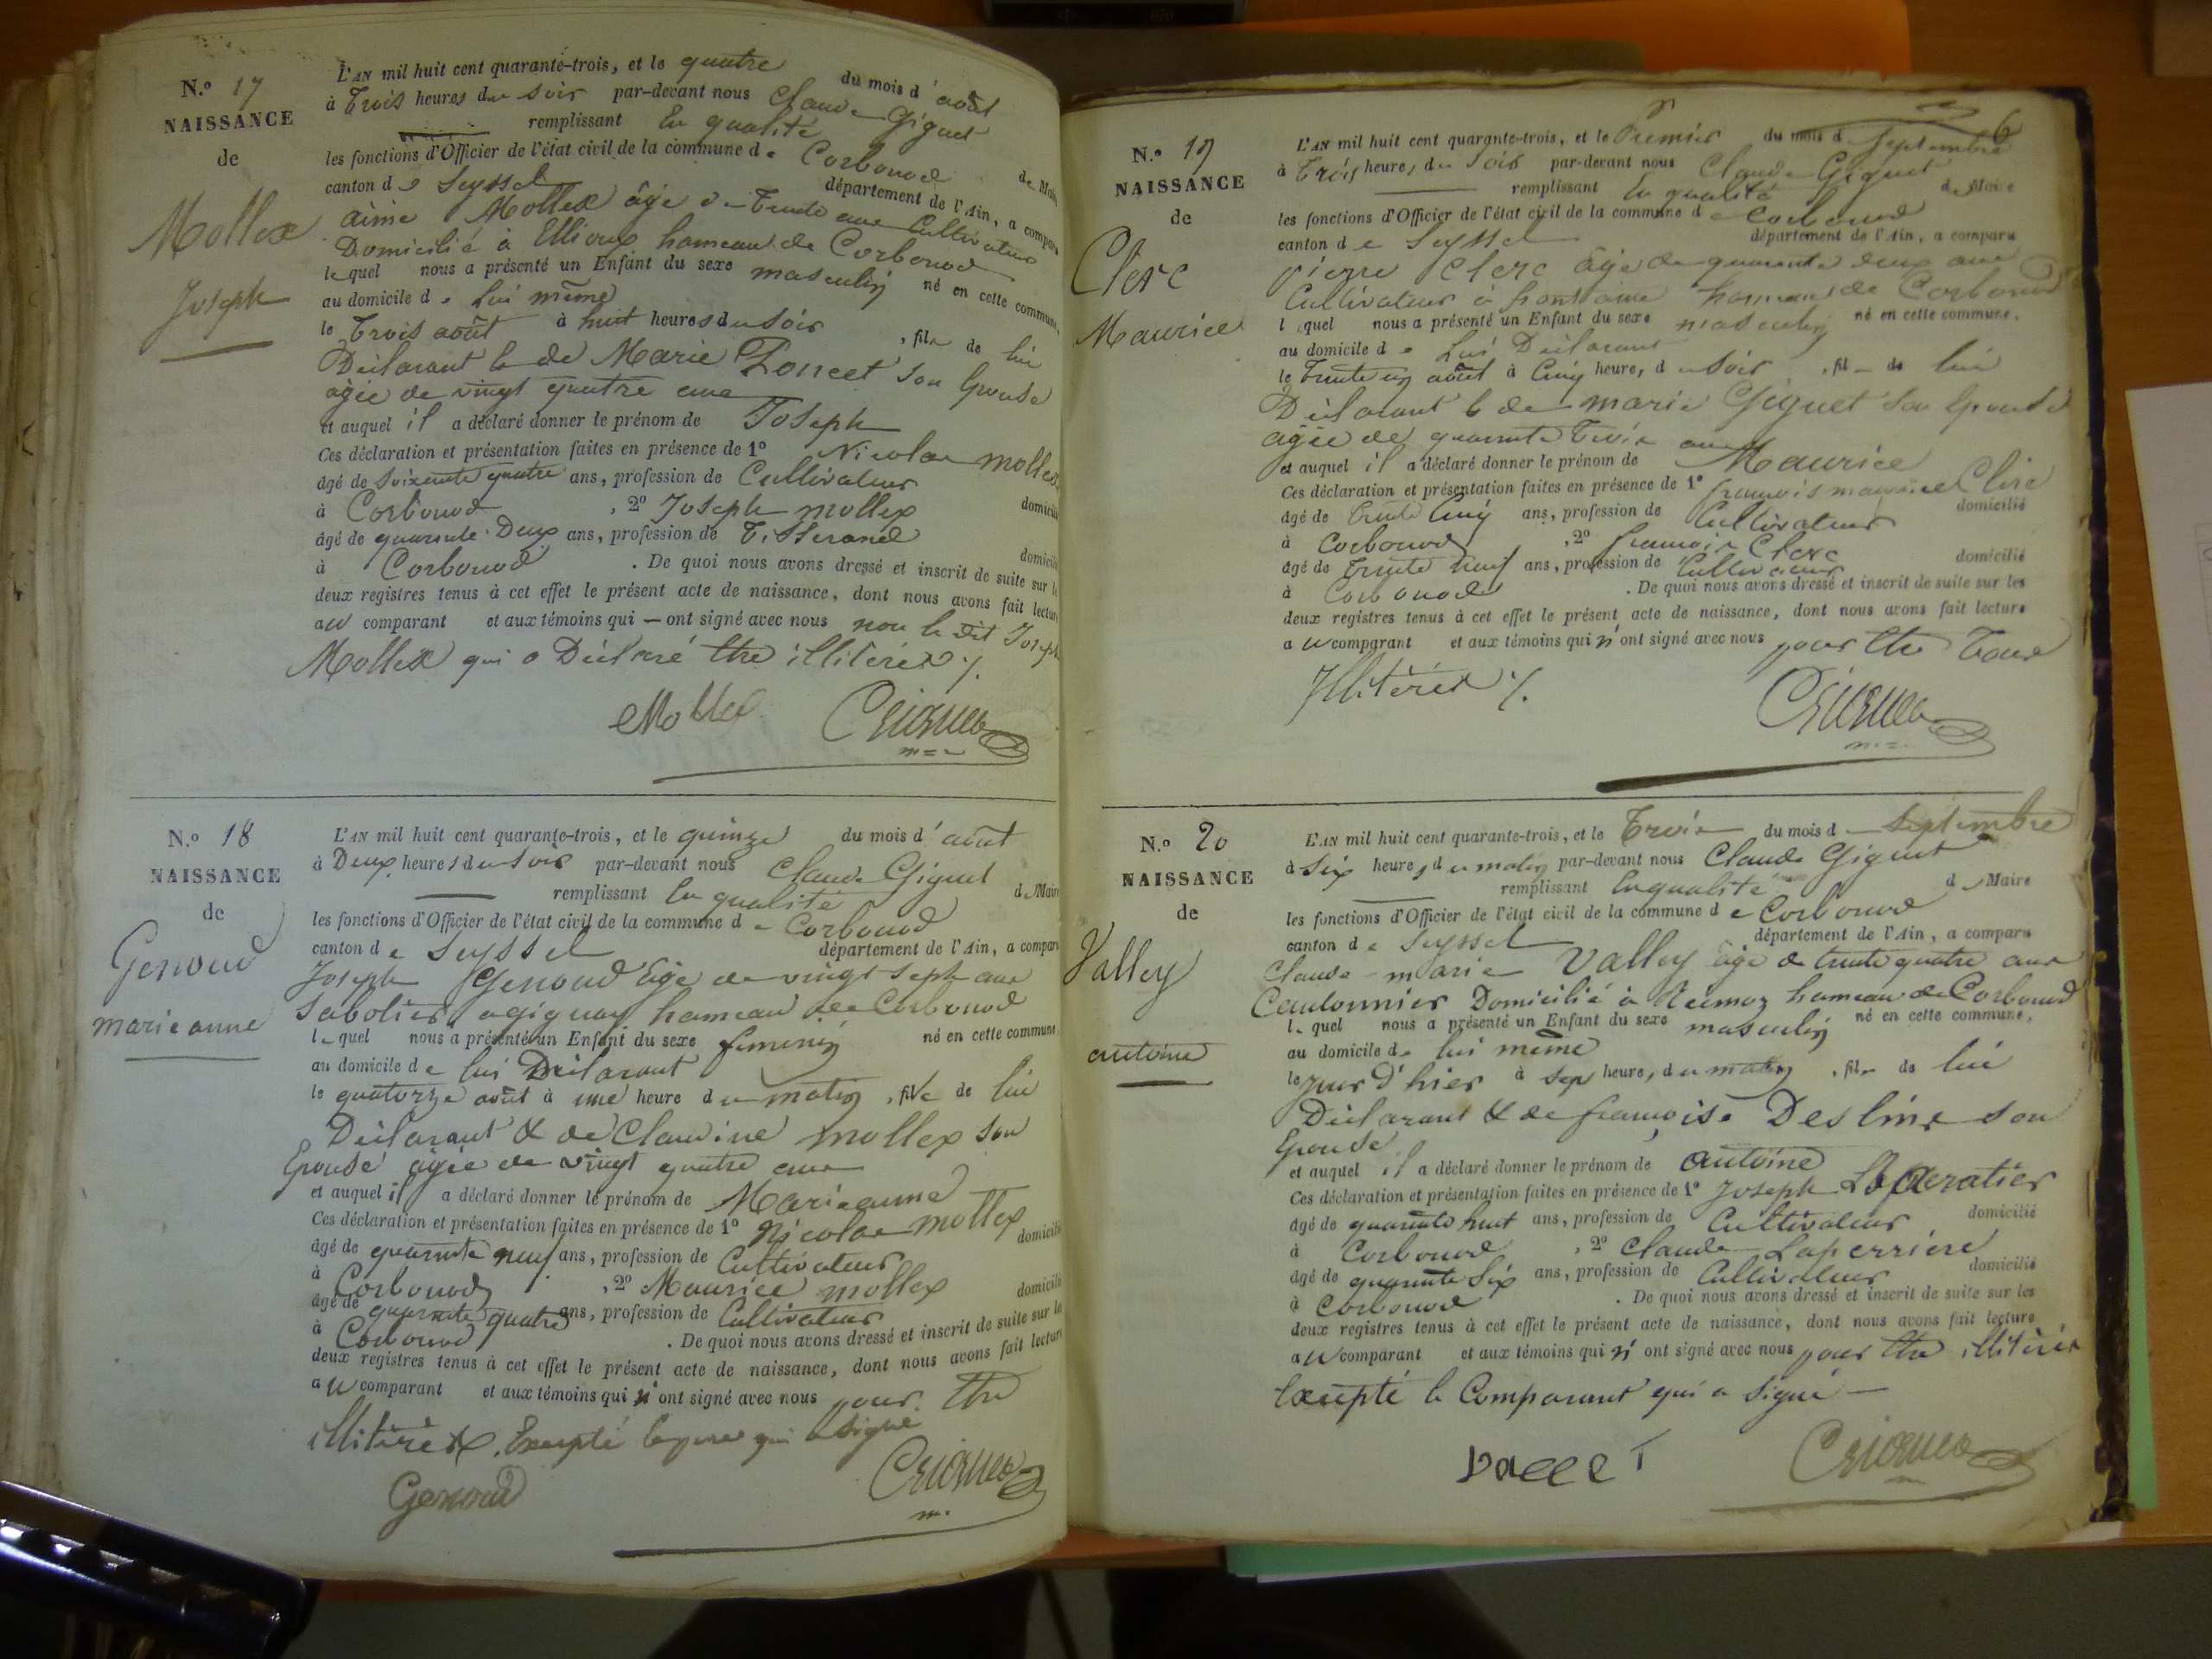 N.º 17
NAISSANCE
de
Mollex
Joseph
L'AN mil huit cent quarante-trois, et le quatre du mois d'août
à Trois heures du soir par-devant nous Claude Giguet
remplissant En qualité de Maire
les fonctions d'Officier de l'état civil de la commune de Corbonod
canton de Seyssel département de l'Ain, a comparu
aimé Mollex âgé de Trente ans Cultivateur
Domicilié à Ellioux hameau de Corbonod
lequel nous a présenté un Enfant du sexe masculin né en cette commune,
au domicile de Lui même
le Trois août à huit heures du soir, fils de lui
Déclarant & de Marie Poncet son Epouse
agée de vingt quatre ans
et auquel il a déclaré donner le prénom de Joseph
Ces déclaration et présentation faites en présence de 1º Nicolas mollex
âgé de soixante quatre ans, profession de Cultivateur
à Corbonod, 2º Joseph mollex domicilié
âgé de quarante Deux ans, profession de Tisserand
à Corbonod . De quoi nous avons dressé et inscrit de suite sur les
deux registres tenus à cet effet le présent acte de naissance, dont nous avons fait lecture
au comparant et aux témoins qui — ont signé avec nous non le dit Joseph
Mollex qui a Déclaré être illitéré ./.
Mollex Giguet
N.º 18
NAISSANCE
de
Genoud
marie anne
L'AN mil huit cent quarante-trois, et le quinze du mois d'août
à Deux heures du soir par-devant nous Claude Giguet
remplissant En qualité de Maire
les fonctions d'Officier de l'état civil de la commune de Corbonod
canton de Seyssel département de l'Ain, a comparu
Joseph Genoud âgé de vingt sept ans
Sabotier a gignay hameau de Corbonod
lequel nous a présenté un Enfant du sexe feminin né en cette commune
au domicile de lui Déclarant
le quatorze août à une heure du matin, fille de lui
Déclarant & de Claudine mollex son
Epouse âgée de vingt quatre ans
et auquel il a déclaré donner le prénom de Marie anne
Ces déclaration et présentation faites en présence de 1º Nicolas mollex
âgé de quarante neuf ans, profession de Cultivateur domicilié
à Corbonod, 2º Maurice mollex
âgé de quarante quatre ans, profession de Cultivateur domicilié
à Corbonod . De quoi nous avons dressé et inscrit de suite sur les
deux registres tenus à cet effet le présent acte de naissance, dont nous avons fait lecture
au comparant et aux témoins qui n'ont signé avec nous pour être
illitérés, Excepté le pere qui a signé
Genoud Giguet
6
N.º 19
NAISSANCE
de
Clerc
Maurice
L'AN mil huit cent quarante-trois, et le Premier du mois de septembre
à Trois heures du soir par-devant nous Claude Giguet
remplissant En qualité de Maire
les fonctions d'Officier de l'état civil de la commune de Corbonod
canton de Seyssel département de l'Ain, a comparu
pierre Clerc âgé de quarante deux ans
Cultivateur à hameau de Corbonod
lequel nous a présenté un Enfant du sexe masculin né en cette commune,
au domicile de Lui Déclarant
le Trente un août à Cinq heures du soir, fils de lui
Déclarant & de marie Giguet son Epouse
agée de quarante Trois ans
et auquel il a déclaré donner le prénom de Maurice
Ces déclaration et présentation faites en présence de 1º françois maurice Clerc
âgé de trente Cinq ans, profession de Cultivateur domicilié
à Corbonod, 2º françois Clerc
âgé de Trente neuf ans, profession de Cultivateur domicilié
à Corbonod . De quoi nous avons dressé et inscrit de suite sur les
deux registres tenus à cet effet le présent acte de naissance, dont nous avons fait lecture
au comparant et aux témoins qui n'ont signé avec nous pour être Tous
Illitérés ./.
Giguet
N.º 20
NAISSANCE
de
Valley
antoine
L'AN mil huit cent quarante-trois, et le Trois du mois de Septembre
à six heures du matin par-devant nous Claude Giguet
remplissant En qualité de Maire
les fonctions d'Officier de l'état civil de la commune de Corbonod
canton de Seyssel département de l'Ain, a comparu
Claude marie Valley âgé de trente quatre ans
Cantonnier Domicilié à hameau de Corbonod
lequel nous a présenté un Enfant du sexe masculin né en cette commune,
au domicile de lui même
le jour d'hier à sept heures du matin, fils de lui
Déclarant & de françoise son
Epouse
et auquel il a déclaré donner le prénom de antoine
Ces déclaration et présentation faites en présence de 1º Joseph
âgé de quarante huit ans, profession de Cultivateur domicilié
à Corbonod, 2º Claude Laperriere
âgé de quarante Six ans, profession de Cultivateur domicilié
à Corbonod . De quoi nous avons dressé et inscrit de suite sur les
deux registres tenus à cet effet le présent acte de naissance, dont nous avons fait lecture
au comparant et aux témoins qui n'ont signé avec nous pour être illitérés
Excepté le Comparant qui a signé —
Giguet